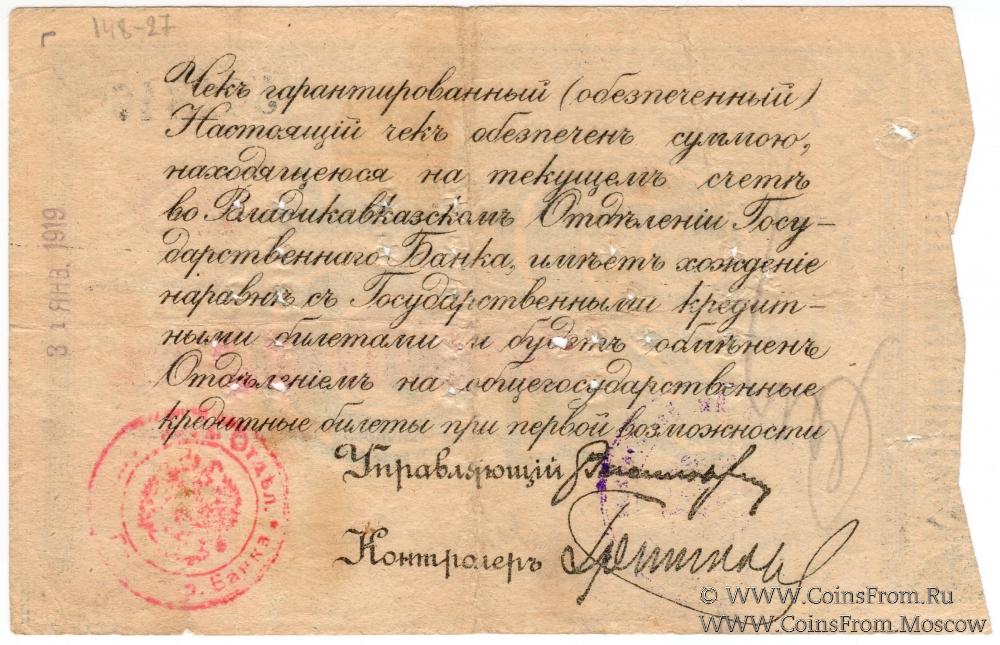 148-27
Чекъ гарантированный (обезпеченный)
Настоящій чекъ обезпеченъ суммою,
находящеюся на текущемъ счетѣ
во Владикавказскомъ Отдѣленіи Госу-
дарственнаго Банка, имѣетъ хожденіе
наравнѣ съ Государственными кредит-
ными билетами и будетъ обмѣненъ
Отдѣленіемъ на общегосударственные
кредитные билеты при первой возможности
Управляющій
Контролеръ
31 ЯНВ. 1919
Отдѣл.
Банка
© WWW.CoinsFrom.Ru
WWW.CoinsFrom.Moscow